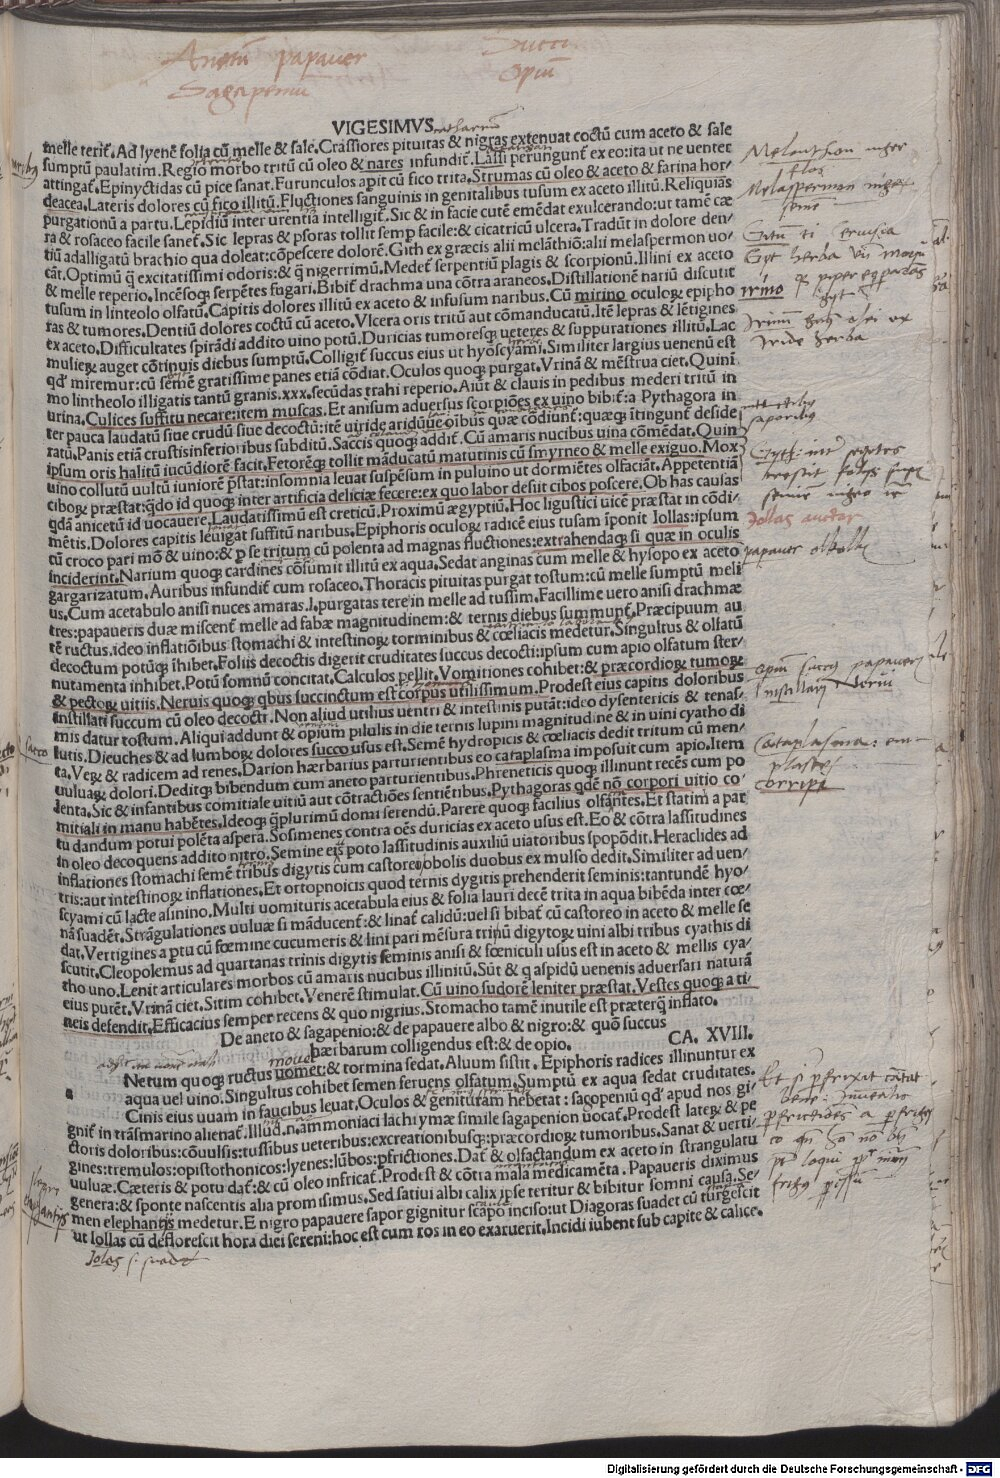 Anetū papauer
Sagapenū
Succi
Opiū
VIGESIMVS
melle terit̃. Ad lyenē folia cū melle & sale. Crassiores pituitas & nigras extenuat coctū cum aceto & sale
sumptū paulatim. Regio morbo tritū cū oleo & nares infundit̃. Lassi perungunt̃ ex eo: ita ut ne uenter
attingat̃. Epinyctidas cū pice sanat. Furunculos apit cū fico trita. Strumas cū oleo & aceto & farina hor/
deacea. Lateris dolores cū fico illitū. Fluctiones sanguinis in genitalibus tusum ex aceto illitū. Reliquias
purgationū a partu. Lepidiū inter urentia intelligit̃. Sic & in facie cutē emēdat exulcerando: ut tamē cæ
ra & rosaceo facile sanet̃. Sic lepras & psoras tollit semp facile: & cicatricū ulcera. Tradūt in dolore den/
tiū adalligatū brachio qua doleat: cōpescere dolorē. Gith ex græcis alii melāthiō: alii melaspermon uo/
cāt. Optimū q̄ excitatissimi odoris: & q̄ nigerrimū. Medet̃ serpentiū plagis & scorpionū. Illini ex aceto
& melle reperio. Incēsoq; serpētes fugari. Bibit̃ drachma una cōtra araneos. Distillationē nariū discutit
tusum in linteolo olfatū. Capitis dolores illitū ex aceto & infusum naribus. Cū mirino oculoꝝ epipho
ras & tumores. Dentiū dolores coctū cū aceto. Vlcera oris tritū aut cōmanducatū. Itē lepras & lētigines
ex aceto. Difficultates spirādi addito uino potū. Duricias tumoresq; ueteres & suppurationes illitū. Lac
mulieꝝ auget cōtinuis diebus sumptū. Colligit̃ succus eius ut hyoscyami. Similiter largius uenenū est
qd' miremur: cū semē gratissime panes etiā cōdiat. Oculos quoq; purgat. Vrinā & mēstrua ciet. Quini
mo lintheolo illigatis tantū granis .xxx. secūdas trahi reperio. Aiūt & clauis in pedibus mederi tritū in
urina. Culices suffitu necare: item muscas. Et anisum aduersus scorpiōes ex uino bibit̃: a Pythagora in
ter pauca laudatū siue crudū siue decoctū: itē uiride aridūue oibus quæ cōdiunt̃: quæq; ītingunt̃ deside
ratū. Panis etiā crustis inferioribus subditū. Saccis quoq; addit̃. Cū amaris nucibus uina cōmēdat. Quin
ipsum oris halitū iucūdiorē facit. Fetorēq; tollit māducatū matutinis cū smyrneo & melle exiguo. Mox
uino collutū uultū iuniorē p̄stat: insomnia leuat suspēsum in puluino ut dormiētes olfaciāt. Appetentiā
ciboꝝ præstat: qdo id quoq; inter artificia deliciæ fecere: ex quo labor desiit cibos poscere. Ob has causas
qdā anicetū id uocauere. Laudatissimū est creticū. Proximū ægyptiū. Hoc ligustici uicē præstat in cōdi/
mētis. Dolores capitis leuigat suffitū naribus. Epiphoris oculoꝝ radicē eius tusam īponit Iollas: ipsum
cū croco pari mō & uino: & p se tritum cū polenta ad magnas fluctiones: extrahendaq; si quæ in oculis
inciderint. Narium quoq; cardines cōsumit illitū ex aqua. Sedat anginas cum melle & hysopo ex aceto
gargarizatum. Auribus infundit̃ cum rosaceo. Thoracis pituitas purgat tostum: cū melle sumptū meli
us. Cum acetabulo anisi nuces amaras .l. purgatas tere in melle ad tussim. Facillime uero anisi drachmæ
tres: papaueris duæ miscent̃ melle ad fabæ magnitudinem: & ternis diebus summunt̃. Præcipuum au
tē ructus. ideo inflatiōibus stomachi & intestinoꝝ torminibus & cœliacis medetur. Singultus & olfatū
decoctum potūq; īhibet. Foliis decoctis digerit cruditates succus decocti: ipsum cum apio olfatum ster/
nutamenta inhibet. Potū somnū concitat. Calculos pellit. Vomitiones cohibet: & præcordioꝝ tumoꝝ
& pectoꝝ uitiis. Neruis quoq; qbus succinctum est corpus utilissimum. Prodest eius capitis doloribus
instillati succum cū oleo decocti. Non aliud utilius uentri & intestinis putāt: ideo dysentericis & tenas/
mis datur tostum. Aliqui addunt & opium pilulis in die ternis lupini magnitudine & in uini cyatho di
lutis. Dieuches & ad lumboꝝ dolores succo usus est. Semē hydropicis & cœliacis dedit tritum cū men/
ta. Veꝝ & radicem ad renes. Darion hærbarius parturientibus eo cataplasma imposuit cum apio. Item
uuluaꝝ dolori. Deditq; bibendum cum aneto parturientibus. Phreneticis quoq; illinunt recēs cum po
lenta. Sic & infantibus comitiale uitiū aut cōtractiōes sentiētibus. Pythagoras qdē nō corpori uitio co/
mitiali in manu habētes. Ideoq; q̄plurimū domi serendū. Parere quoq; facilius olfātes. Et statim a par
tu dandum potui polēta aspera. Sosimenes contra oēs duricias ex aceto usus est. Eo & cōtra lassitudines
in oleo decoquens addito nitro. Semine eiꝰ poto lassitudinis auxiliū uiatoribus spopōdit. Heraclides ad
inflationes stomachi semē tribus digytis cum castorei obolis duobus ex mulso dedit. Similiter ad uen/
tris: aut intestinoꝝ inflationes. Et ortopnoicis quod ternis dygitis prehenderit seminis: tantundē hyo/
scyami cū lacte asinino. Multi uomituris acetabula eius & folia lauri decē trita in aqua bibēda inter cœ/
nā suadēt. Strāgulationes uuluæ si māducent̃: & linat̃ calidū: uel si bibat̃ cū castoreo in aceto & melle se
dat. Vertigines a ptu cū fœmine cucumeris & lini pari mēsura trinū digytoꝝ uini albi tribus cyathis di
scutit. Cleopolemus ad quartanas trinis digytis seminis anisi & fœniculi usus est in aceto & mellis cya/
tho uno. Lenit articulares morbos cū amaris nucibus illinitū. Sūt & q aspidū uenenis aduersari naturā
eius putēt. Vrinā ciet. Sitim cohibet. Venerē stimulat. Cū uino sudorē leniter præstat. Vestes quoq; a ti/
neis defendit. Efficacius semper recens & quo nigrius. Stomacho tamē inutile est præterq̄ inflato.
De aneto & sagapenio: & de papauere albo & nigro: & quō succus
hærbarum colligendus est: & de opio. CA. XVIII.
Netum quoq; ructus mouet: & tormina sedat. Aluum sistit. Epiphoris radices illinuntur ex
aqua uel uino. Singultus cohibet semen feruens olfatum. Sumptū ex aqua sedat cruditates.
Cinis eius uuam in faucibus leuat. Oculos & genituram hebetat: sagopeniū qd' apud nos gi/
gnit̃ in trāsmarino alienat̃. Illud .n. ammoniaci lachrymæ simile sagapenion uocat̃. Prodest lateꝝ & pe
ctoris doloribus: cōuulsis: tussibus ueteribus: excreationibusq;: præcordioꝝ tumoribus. Sanat & uerti
gines: tremulos: opistothonicos: lyenes: lūbos: pfrictiones. Dat̃ & olfactandum ex aceto in strangulatu
uuluæ. Cæteris & potu dat̃: & cū oleo infricat̃. Prodest & cōtra mala medicamēta. Papaueris diximus
genera: & sponte nascentis alia promisimus. Sed satiui albi calix ipse teritur & bibitur somni causa. Se/
men elephantiis medetur. E nigro papauere sapor gignitur scapo inciso: ut Diagoras suadet cū turgescit
ut Iollas cū deflorescit hora diei sereni: hoc est cum ros in eo exaruerit. Incidi iubent sub capite & calice.
Melanthion niger
flos
Melaspermon niger
semē
irino
Iride herba
Jollas auctor
opiū succus papaueris
Cataplasma: em-
plastrū
corripi
Digitalisierung gefördert durch die Deutsche Forschungsgemeinschaft - DFG